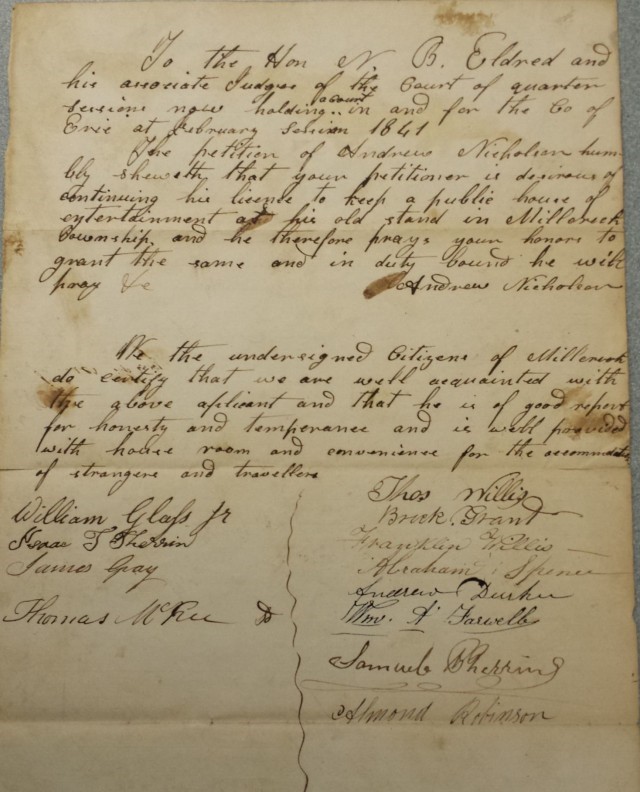 To the Hon N. B. Eldred and
his associate Judges of the Court of quarter
sessions now holding a court in and for the Co of
Erie at February Session 1841
The petition of Andrew Nicholson hum-
bly sheweth that your petitioner is desirous of
continuing his licence to keep a public house of
entertainment at his old stand in Millcreek
Township, and he therefore prays your honors to
grant the same and in duty bound he will
pray &c Andrew Nicholson
We the undersigned Citizens of Millcreek
do certify that we are well acquainted with
the above aplicant and that he is of good report
for honesty and temperance and is well provided
with house room and convenience for the accommodation
of strangers and travellers
Thos Willis
William Glass Jr
Brook. Grant
Isaac T Sherrin
Franklin Willis
James Gray
Abraham Spencer
Andrew
Thomas McKee
Wm. A Farwell
Samuel Sherring
Almond Robinson